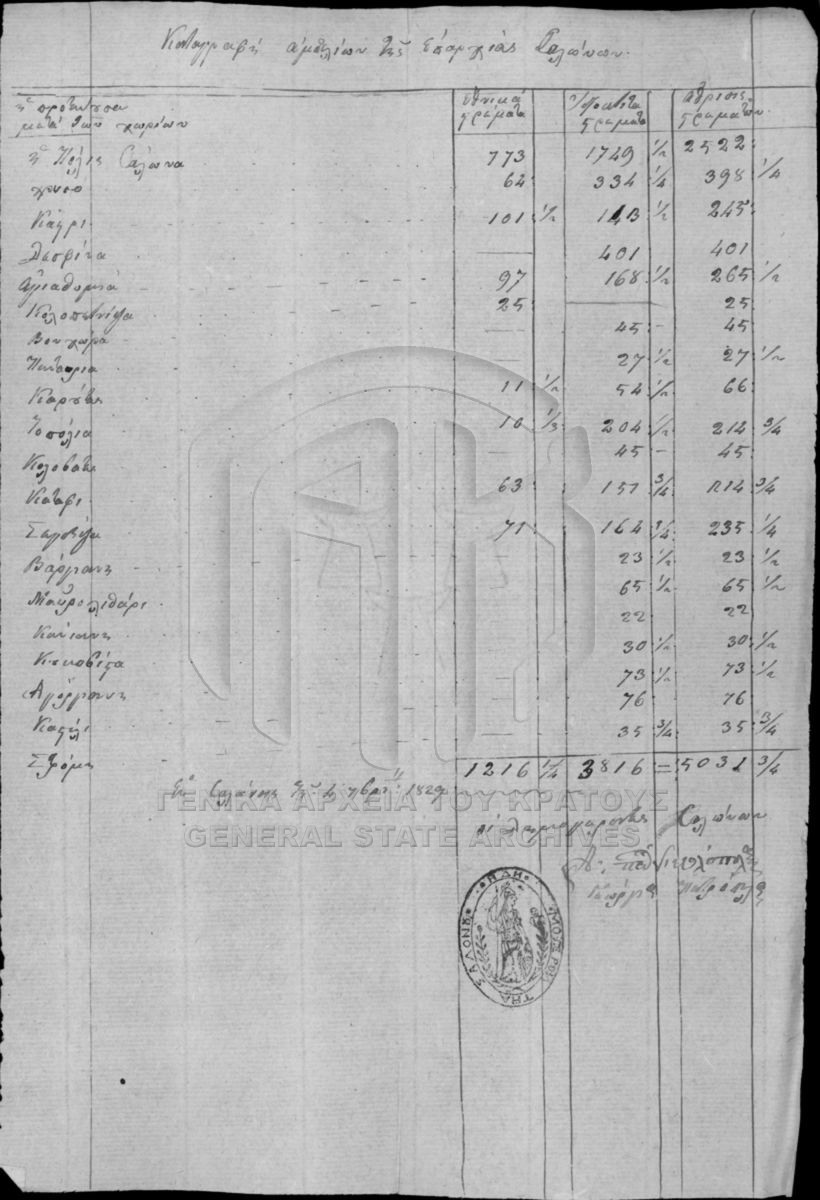 Καταγραφή αμπελίων της Επαρχίας Σαλώνων.
εθνικά στρέματα Ιδιόκτητα στρέματα άθροισις στρεμάτων
ματα των χωρίων
η Πόλις Σάλωνα 773 1749 1/2 2522:
χρισσό 64: 334 1/4 398 1/4
101 1/2 143 1/2 245:
Δεσφίνα — 401 401
Αγιαθυμιά 97 168 1/2 265 1/2
Κολοπετνίτζα 25: — 25:
Βουνχώρα — 45 – 45
Πεντεόρια — 27 1/2 27 1/2
11 1/2 54 1/2 66
Τοπόλια 10 1/3 204 1/2 214 3/4
Κολοβάτες — 45 – 45
63 151 3/4 214 3/4
71 164 1/4 235 1/4
Βάργιανη 23 1/2 23 1/2
Μαυρολιθάρι 65 1/2 65 1/2
Κάνιανη 22 22
Κουκοβίστα 30 1/2 30 1/2
Αγόργιανη 73 1/2 73 1/2
76 76
Στρόμη 35 3/4 35 3/4
1216 1/4 3816 = 5031 3/4
Εν Σαλώνοις 1829
οι Δημογέροντες Σαλώνων
ΓΕΝΙΚΑ ΑΡΧΕΙΑ ΤΟΥ ΚΡΑΤΟΥΣ
GENERAL STATE ARCHIVES